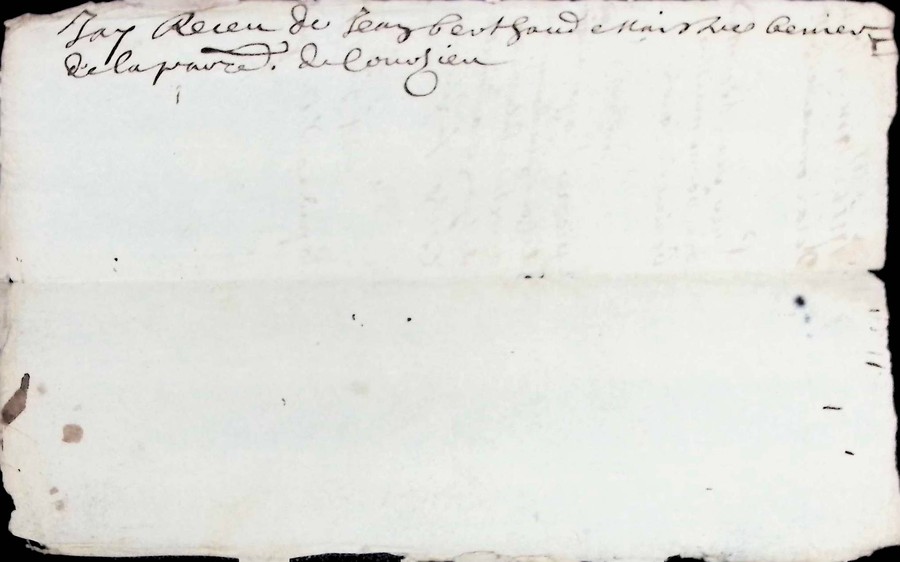 Jay Receu de Jean berthaud & Maistre benier
de la parr.ce de Courzieu